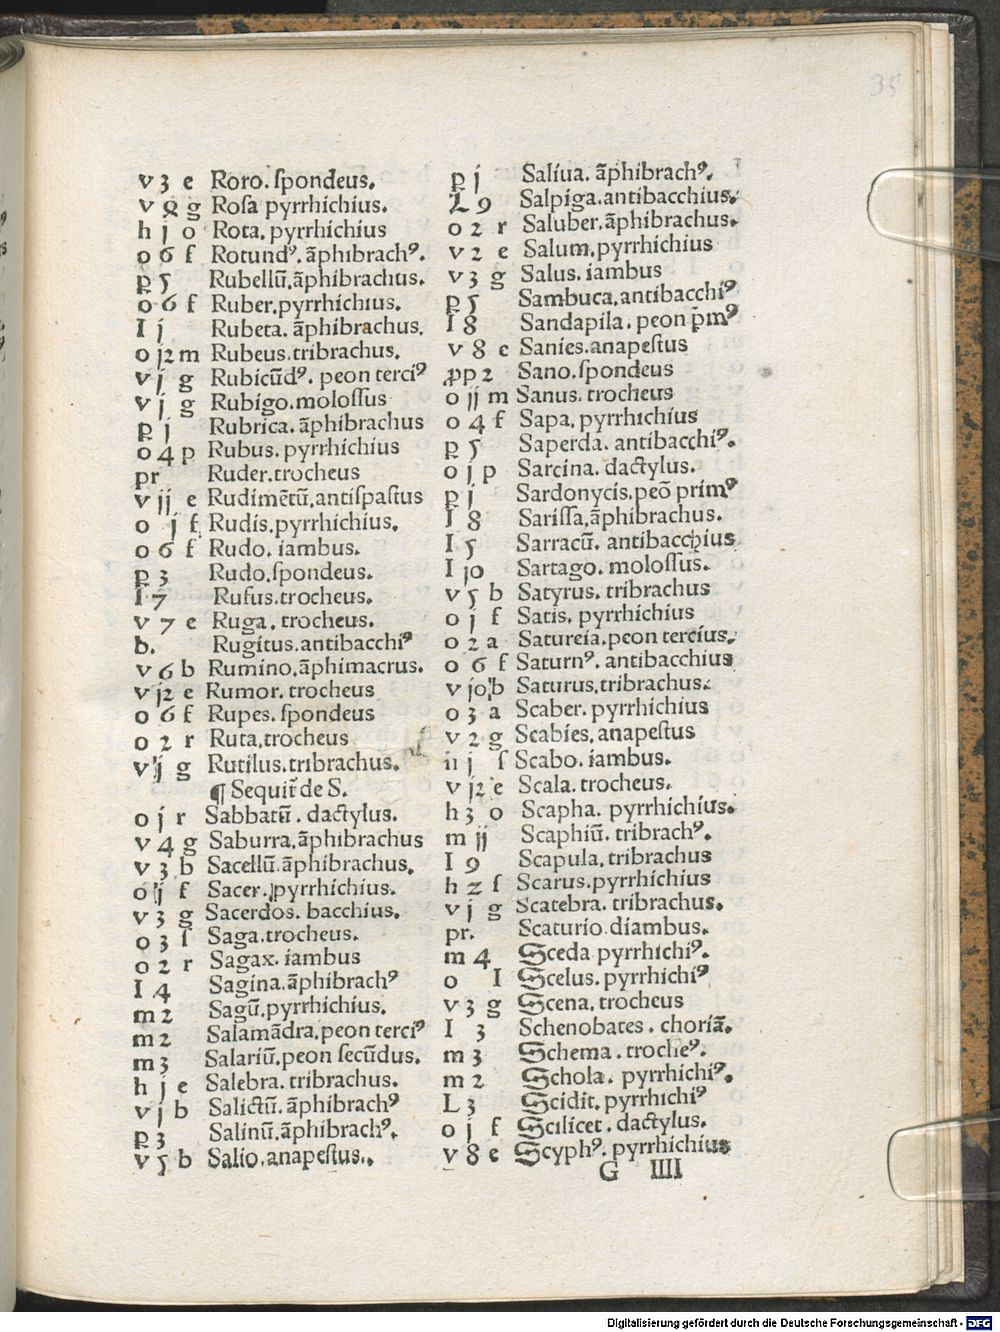 35
v 3 e Roro. ſpondeus.
v 8 g Roſa pyrrhichius.
h j o Rota. pyrrhichius
o 6 f Rotundꝰ. āphibrachꝰ.
p 5 Rubellū. āphibrachus.
o 6 f Ruber. pyrrhichius.
I j Rubeta. āphibrachus.
o j2 m Rubeus. tribrachus.
v j g Rubicūdꝰ. peon terciꝰ
v j g Rubigo. moloſſus
p j Rubrica. āphibrachus
o 4 p Rubus. pyrrhichius
pr Ruder. trocheus
v jj e Rudimētū. antiſpaſtus
o j f Rudis. pyrrhichius.
o 6 f Rudo. iambus.
p 3 Rudo. ſpondeus.
I 7 Rufus. trocheus.
v 7 e Ruga. trocheus.
b. Rugitus. antibacchiꝰ
v 6 b Rumino. āphimacrus.
v j2 e Rumor. trocheus
o 6 f Rupes. ſpondeus
o 2 r Ruta. trocheus
v j g Rutilus. tribrachus.
¶ Sequit̄ de S.
o j r Sabbatū. dactylus.
v 4 g Saburra. āphibrachus
v 3 b Sacellū. āphibrachus.
o j f Sacer. pyrrhichius.
v 3 g Sacerdos. bacchius.
o 3 f Saga. trocheus.
o 2 r Sagax. iambus
I 4 Sagina. āphibrachꝰ
m 2 Sagū. pyrrhichius.
m 2 Salamādra. peon terciꝰ
m 3 Salariū. peon ſecūdus.
h j e Salebra. tribrachus.
v j b Salictū. āphibrachꝰ
p 3 Salinū. āphibrachꝰ.
v 5 b Salio. anapeſtus.
p j Saliua. āphibrachꝰ.
L 9 Salpiga. antibacchius.
o 2 r Saluber. āphibrachus.
v 2 e Salum. pyrrhichius
v 3 g Salus. iambus
p 5 Sambuca. antibacchiꝰ
I 8 Sandapila. peon p̄mꝰ
v 8 e Sanies. anapeſtus
pp 2 Sano. ſpondeus
o jj m Sanus. trocheus
o 4 f Sapa. pyrrhichius
p 5 Saperda. antibacchiꝰ.
o j p Sarcina. dactylus.
p j Sardonycis. peō primꝰ
I 8 Sariſſa. āphibrachus.
I 5 Sarracū. antibacchius
I jo Sartago. moloſſus.
v 5 b Satyrus. tribrachus
o j f Satis. pyrrhichius
o 2 a Satureia. peon tercius.
o 6 f Saturnꝰ. antibacchius
v jo b Saturus. tribrachus.
o 3 a Scaber. pyrrhichius
v 2 g Scabies. anapeſtus
iij f Scabo. iambus.
v j2 e Scala. trocheus.
h 3 o Scapha. pyrrhichius.
m jj Scaphiū. tribrachꝰ.
I 9 Scapula. tribrachus
h 2 f Scarus. pyrrhichius
v j g Scatebra. tribrachus.
pr. Scaturio diambus.
m 4 Sceda pyrrhichiꝰ.
o I Scelus. pyrrhichiꝰ
v 3 g Scena. trocheus
I 3 Schenobates. choriā.
m 3 Schema. trocheꝰ.
m 2 Schola. pyrrhichiꝰ.
L 3 Scidit. pyrrhichiꝰ
o j f Scilicet. dactylus.
v 8 e Scyphꝰ. pyrrhichius
G IIII
Digitalisierung gefördert durch die Deutsche Forschungsgemeinschaft - DFG